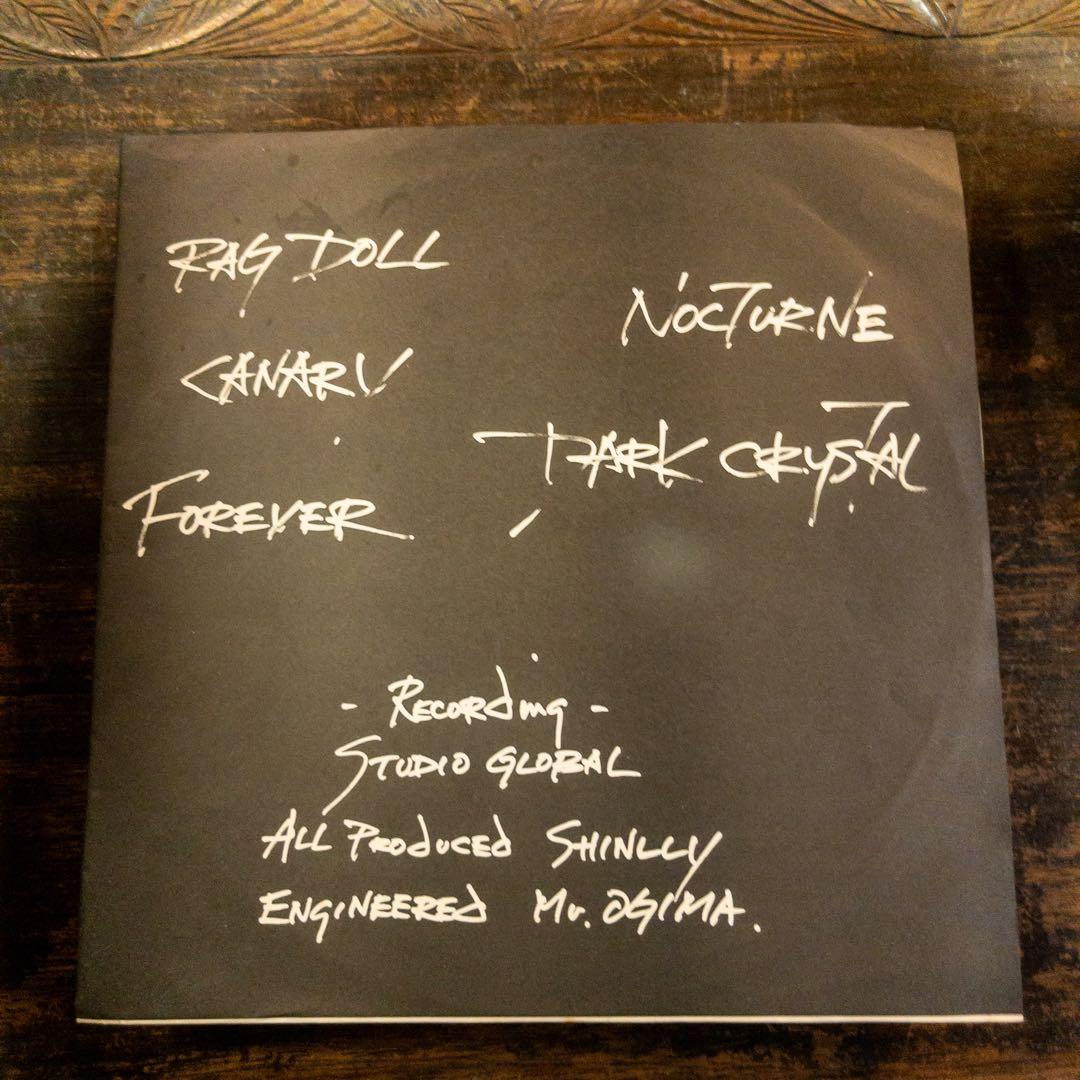 RAG DOLL
CANARY
FOREVER
NOCTURNE
DARK CRYSTAL
- Recording -
STUDIO GLOBAL
ALL PRODUCED SHINLLY
ENGINEERED Mr. OGIMA.